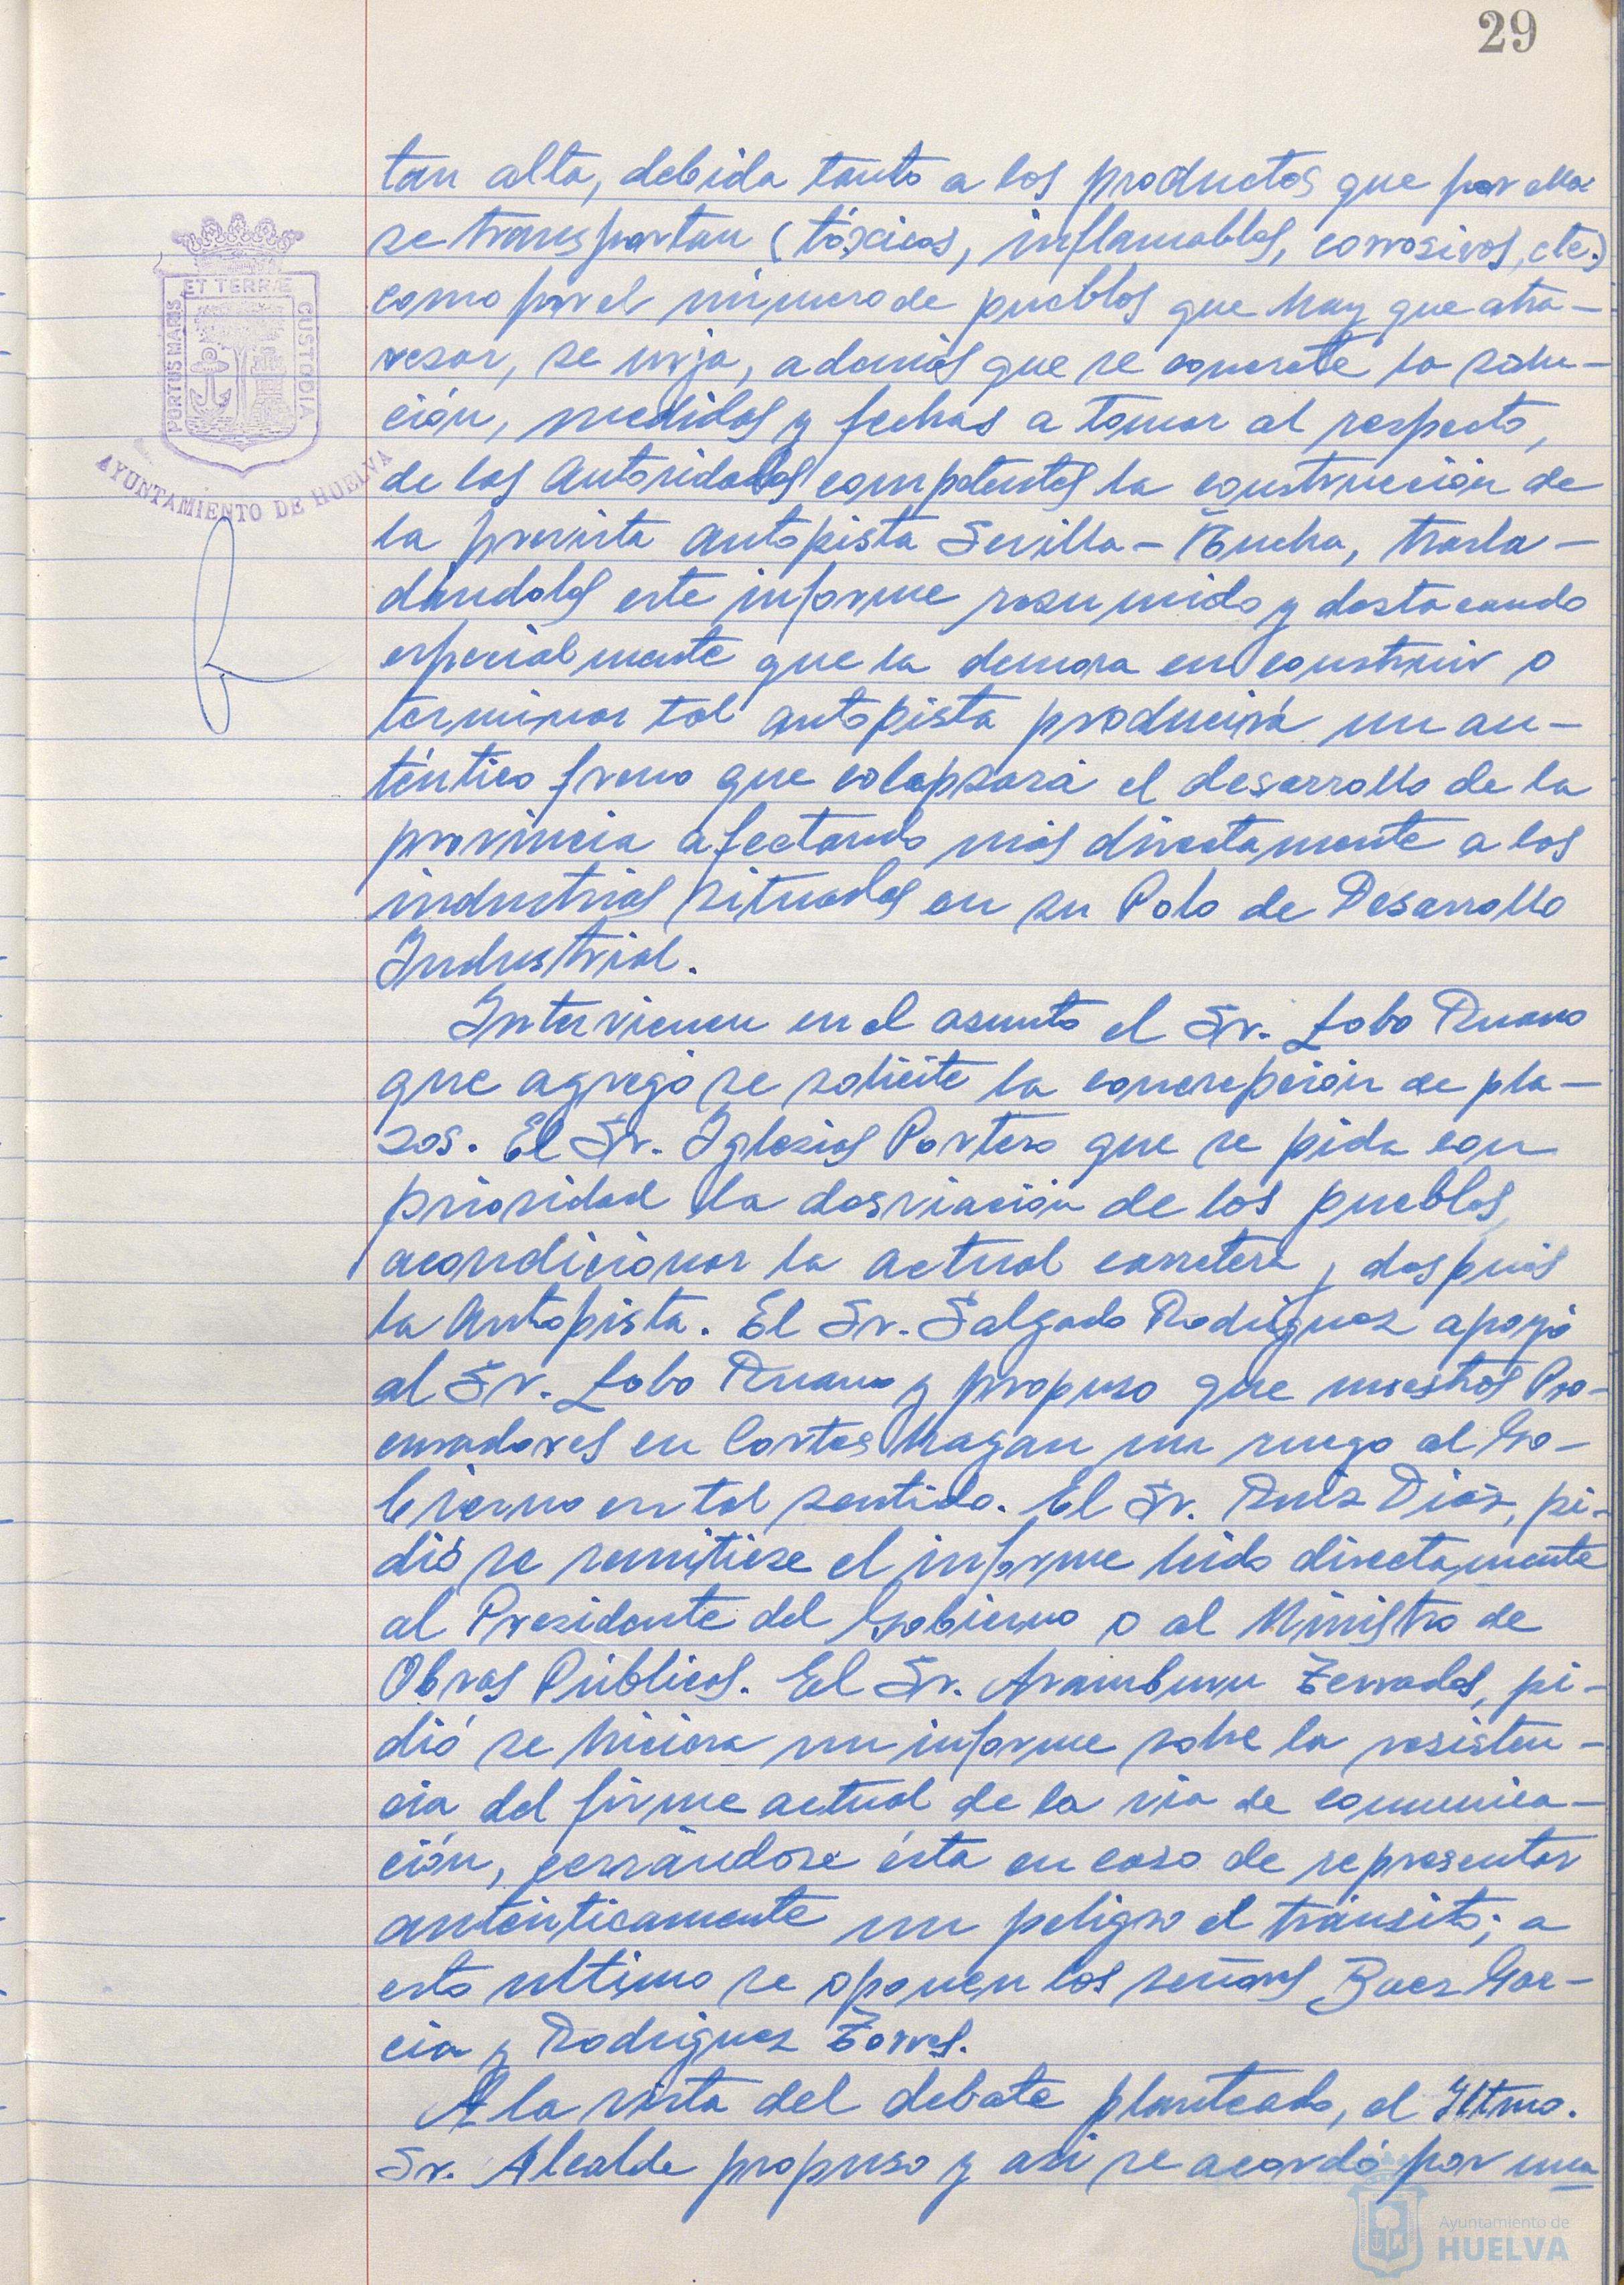 29
tan alta, debida tanto a los productos que por ella
se transportan (tóxicos, inflamables, corrosivos, etc.)
como por el número de pueblos que hay que atra-
vesar, se urja, además que se concrete la solu-
ción, medidas y fechas a tomar al respecto,
de las Autoridades competentes la construcción de
la prevista Autopista Sevilla-Huelva, trasla-
dándoles este informe resumido y destacando
especialmente que la demora en construir o
terminar tal autopista producirá un au-
téntico freno que colapsará el desarrollo de la
provincia afectando más directamente a las
industrias situadas en su Polo de Desarrollo
Industrial.
Intervienen en el asunto el Sr. Lobo Ruano
que agregó se solicite la concrepción de pla-
zos. El Sr. Iglesias Portero que se pida con
prioridad la desviación de los pueblos,
acondicionar la actual carretera, después
la Autopista. El Sr. Salgado Rodríguez apoyó
al Sr. Lobo Ruano y propuso que nuestros Pro-
curadores en Cortes hagan un ruego al Go-
bierno en tal sentido. El Sr. Ruiz Díaz, pi-
dió se remitiese el informe leído directamente
al Presidente del Gobierno o al Ministro de
Obras Públicas. El Sr. Aramburu Terrades, pi-
dió se hiciera un informe sobre la resisten-
cia del firme actual de la via de comunica-
ción, cerrándose ésta en caso de representar
auténticamente un peligro el tránsito; a
esto ultimo se oponen los señores Baez Gar-
cia y Rodriguez Torres.
A la vista del debate planteado, el Iltmo.
Sr. Alcalde propuso y así se acordó por una
PORTUS MARIS ET TERRÆ CUSTODIA
AYUNTAMIENTO DE HUELVA
Ayuntamiento de
HUELVA